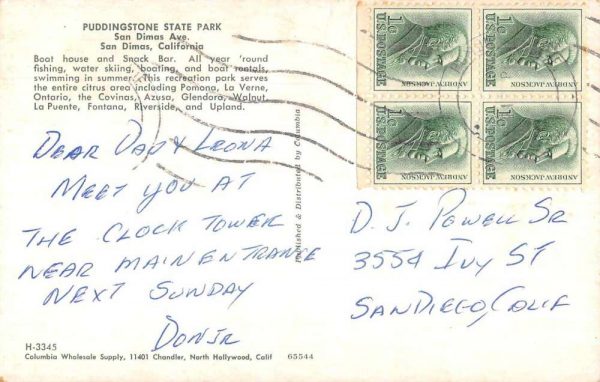 PUDDINGSTONE STATE PARK
San Dimas Ave.
San Dimas, California
Boat house and Snack Bar. All year 'round
fishing, water skiing, boating, and boat rentals,
swimming in summer. This recreation park serves
the entire citrus area including Pomona, La Verne,
Ontario, the Covinas, Azusa, Glendora, Walnut
La Puente, Fontana, Riverside, and Upland.
DEAR DAD & LEONA
MEET YOU AT
THE CLOCK TOWER
NEAR MAIN ENTRANCE
NEXT SUNDAY
DON JR
H-3345
Columbia Wholesale Supply, 11401 Chandler, North Hollywood, Calif 65544
Published & Distributed by Columbia
1c
U.S. POSTAGE
ANDREW JACKSON
1c
U.S. POSTAGE
ANDREW JACKSON
1c
U.S. POSTAGE
ANDREW JACKSON
1c
U.S. POSTAGE
ANDREW JACKSON
D. J. POWELL SR
3554 IVY ST
SAN DIEGO, CALIF